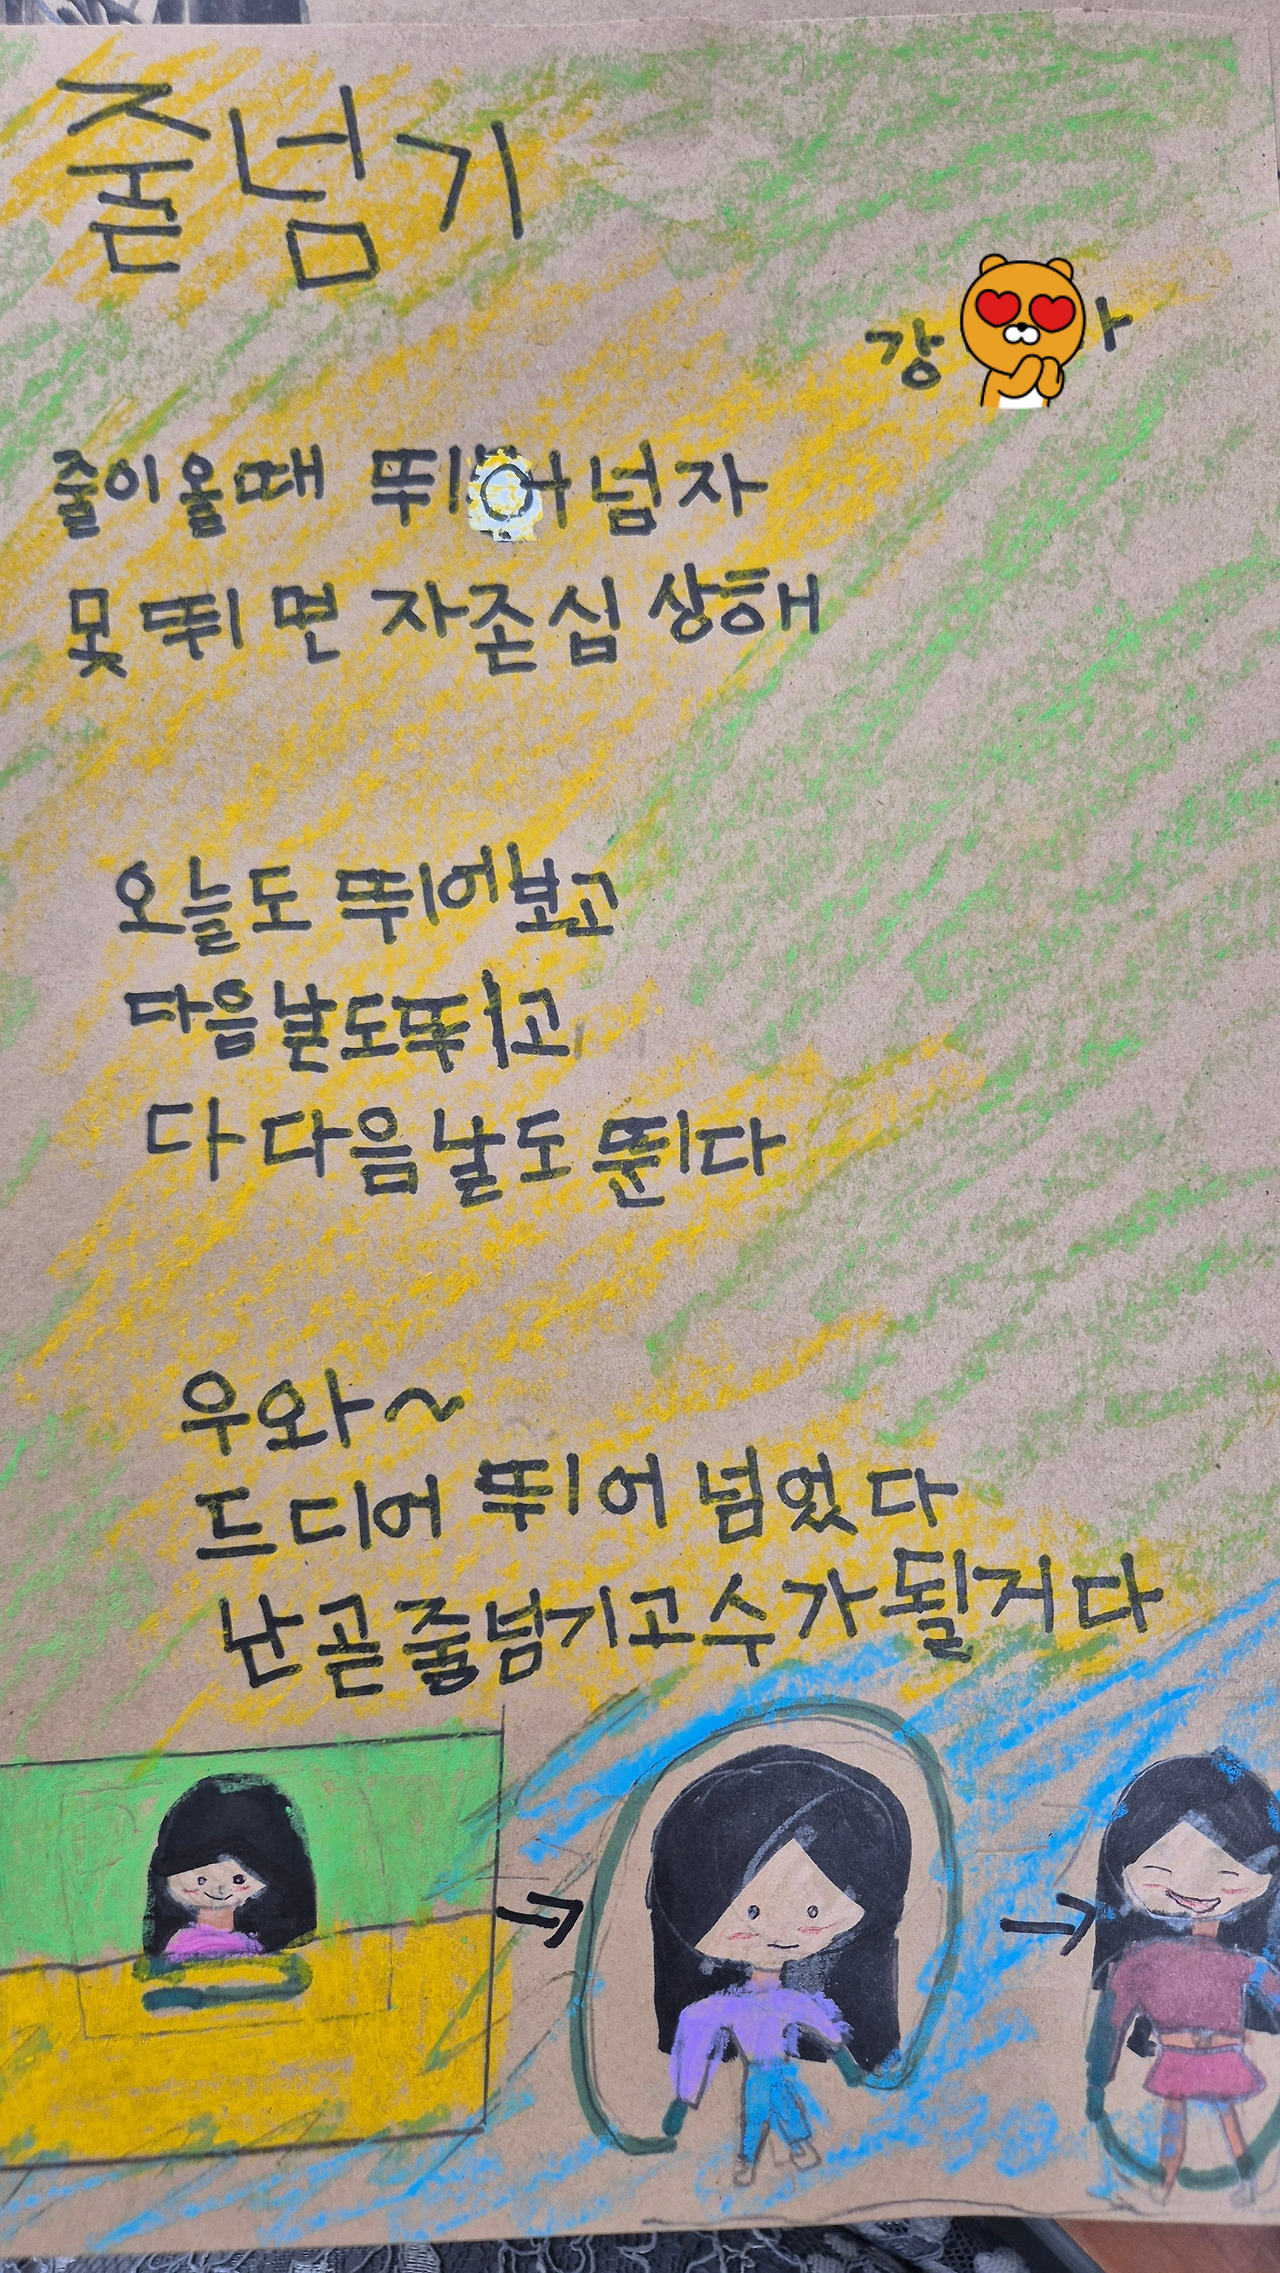 줄넘기
강
줄이 올 때 뛰어 넘자
못 뛰면 자존심 상해
오늘도 뛰어보고
다음날도 뛰고
다 다음날도 뛴다
우와~
드디어 뛰어 넘었다
난 곧 줄넘기 고수가 될거다